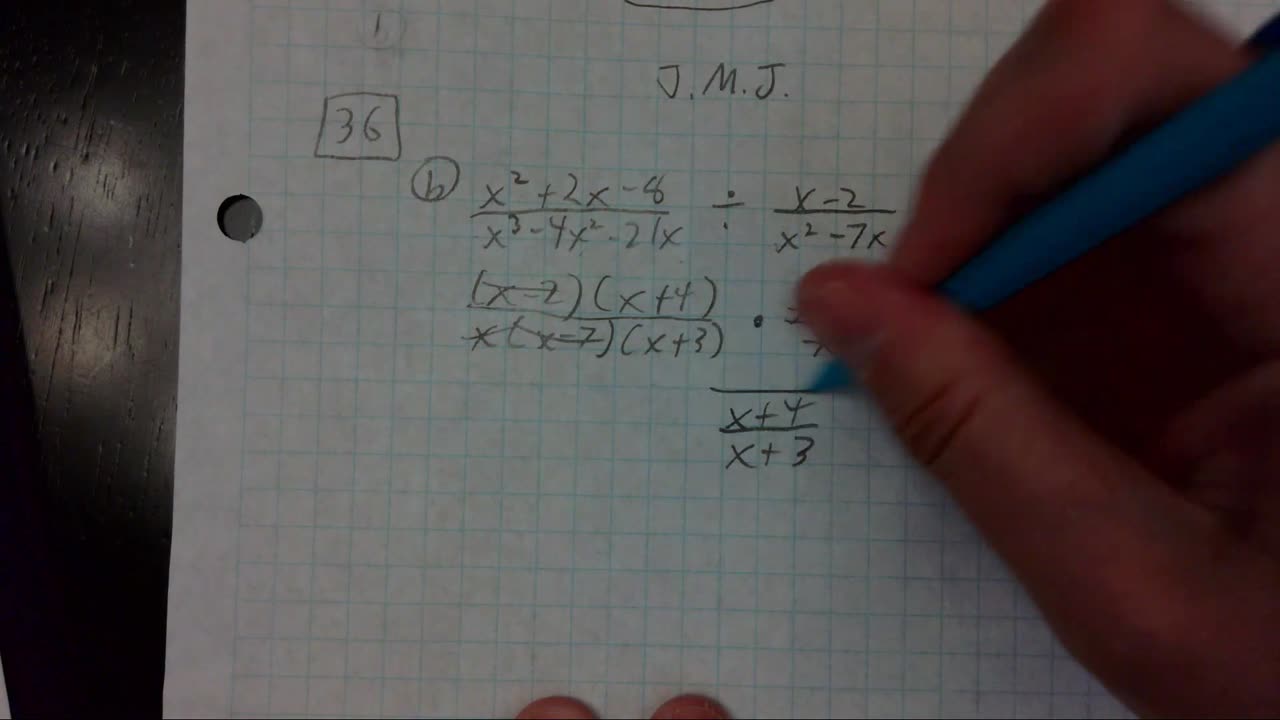 J.M.J.
36
b x² + 2x - 8 / x³ - 4x² - 21x ÷ x - 2 / x² - 7x
(x-2)(x+4) / x(x-7)(x+3) ·
x+4 / x+3